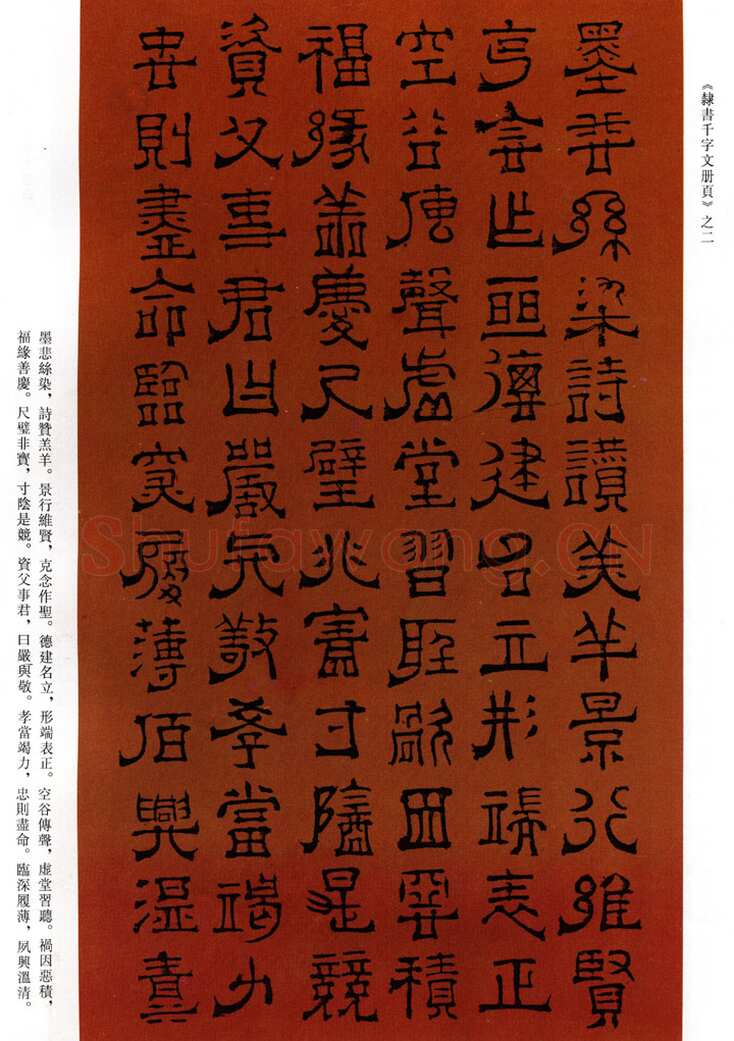 《隸書千字文册頁》之二
墨悲絲染詩讚羔羊景行維賢
克念作聖德建名立形端表正
空谷傳聲虛堂習聽禍因惡積
福緣善慶尺璧非寶寸陰是競
資父事君曰嚴與敬孝當竭力
忠則盡命臨深履薄夙興溫凊
墨悲絲染，詩贊羔羊。景行維賢，克念作聖。德建名立，形端表正。空谷傳聲，虛堂習聽。禍因惡積，
福緣善慶。尺璧非寶，寸陰是競。資父事君，曰嚴與敬。孝當竭力，忠則盡命。臨深履薄，夙興溫清。
Shufawang.CN